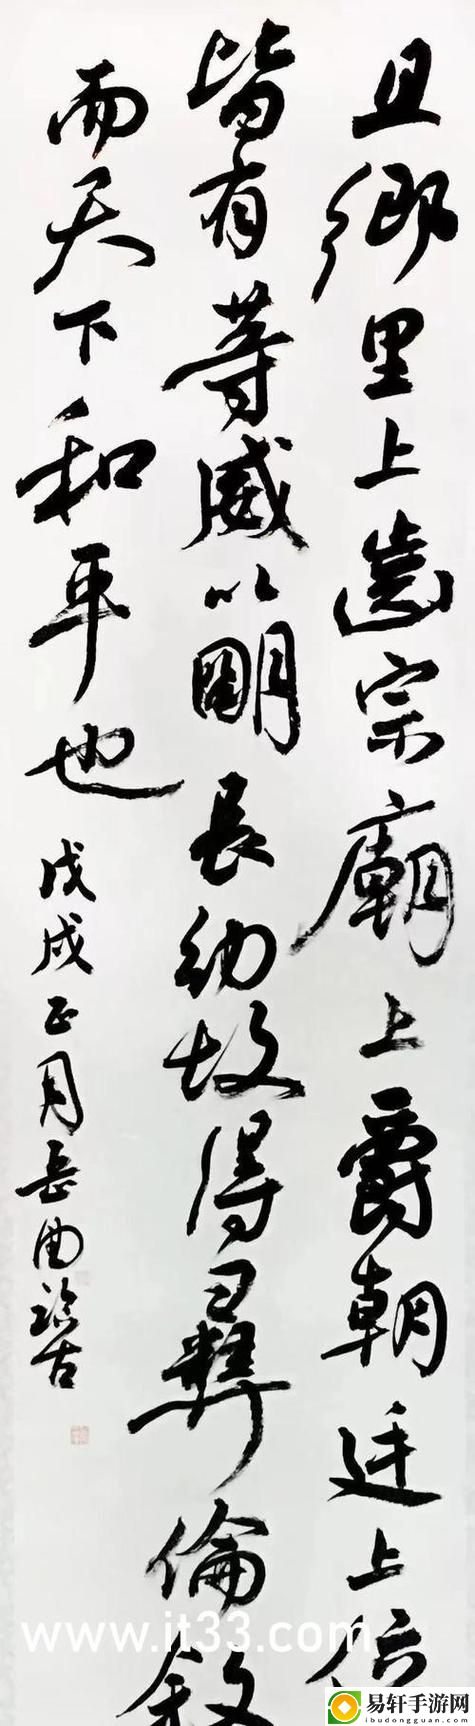 且鄉里上齒宗廟上爵朝廷上位
皆有等威以明長幼故得彝倫敘
而天下和平也
戊戌正月岳曲臨古
www.it33.com
易轩手游网
ibudongguan.com